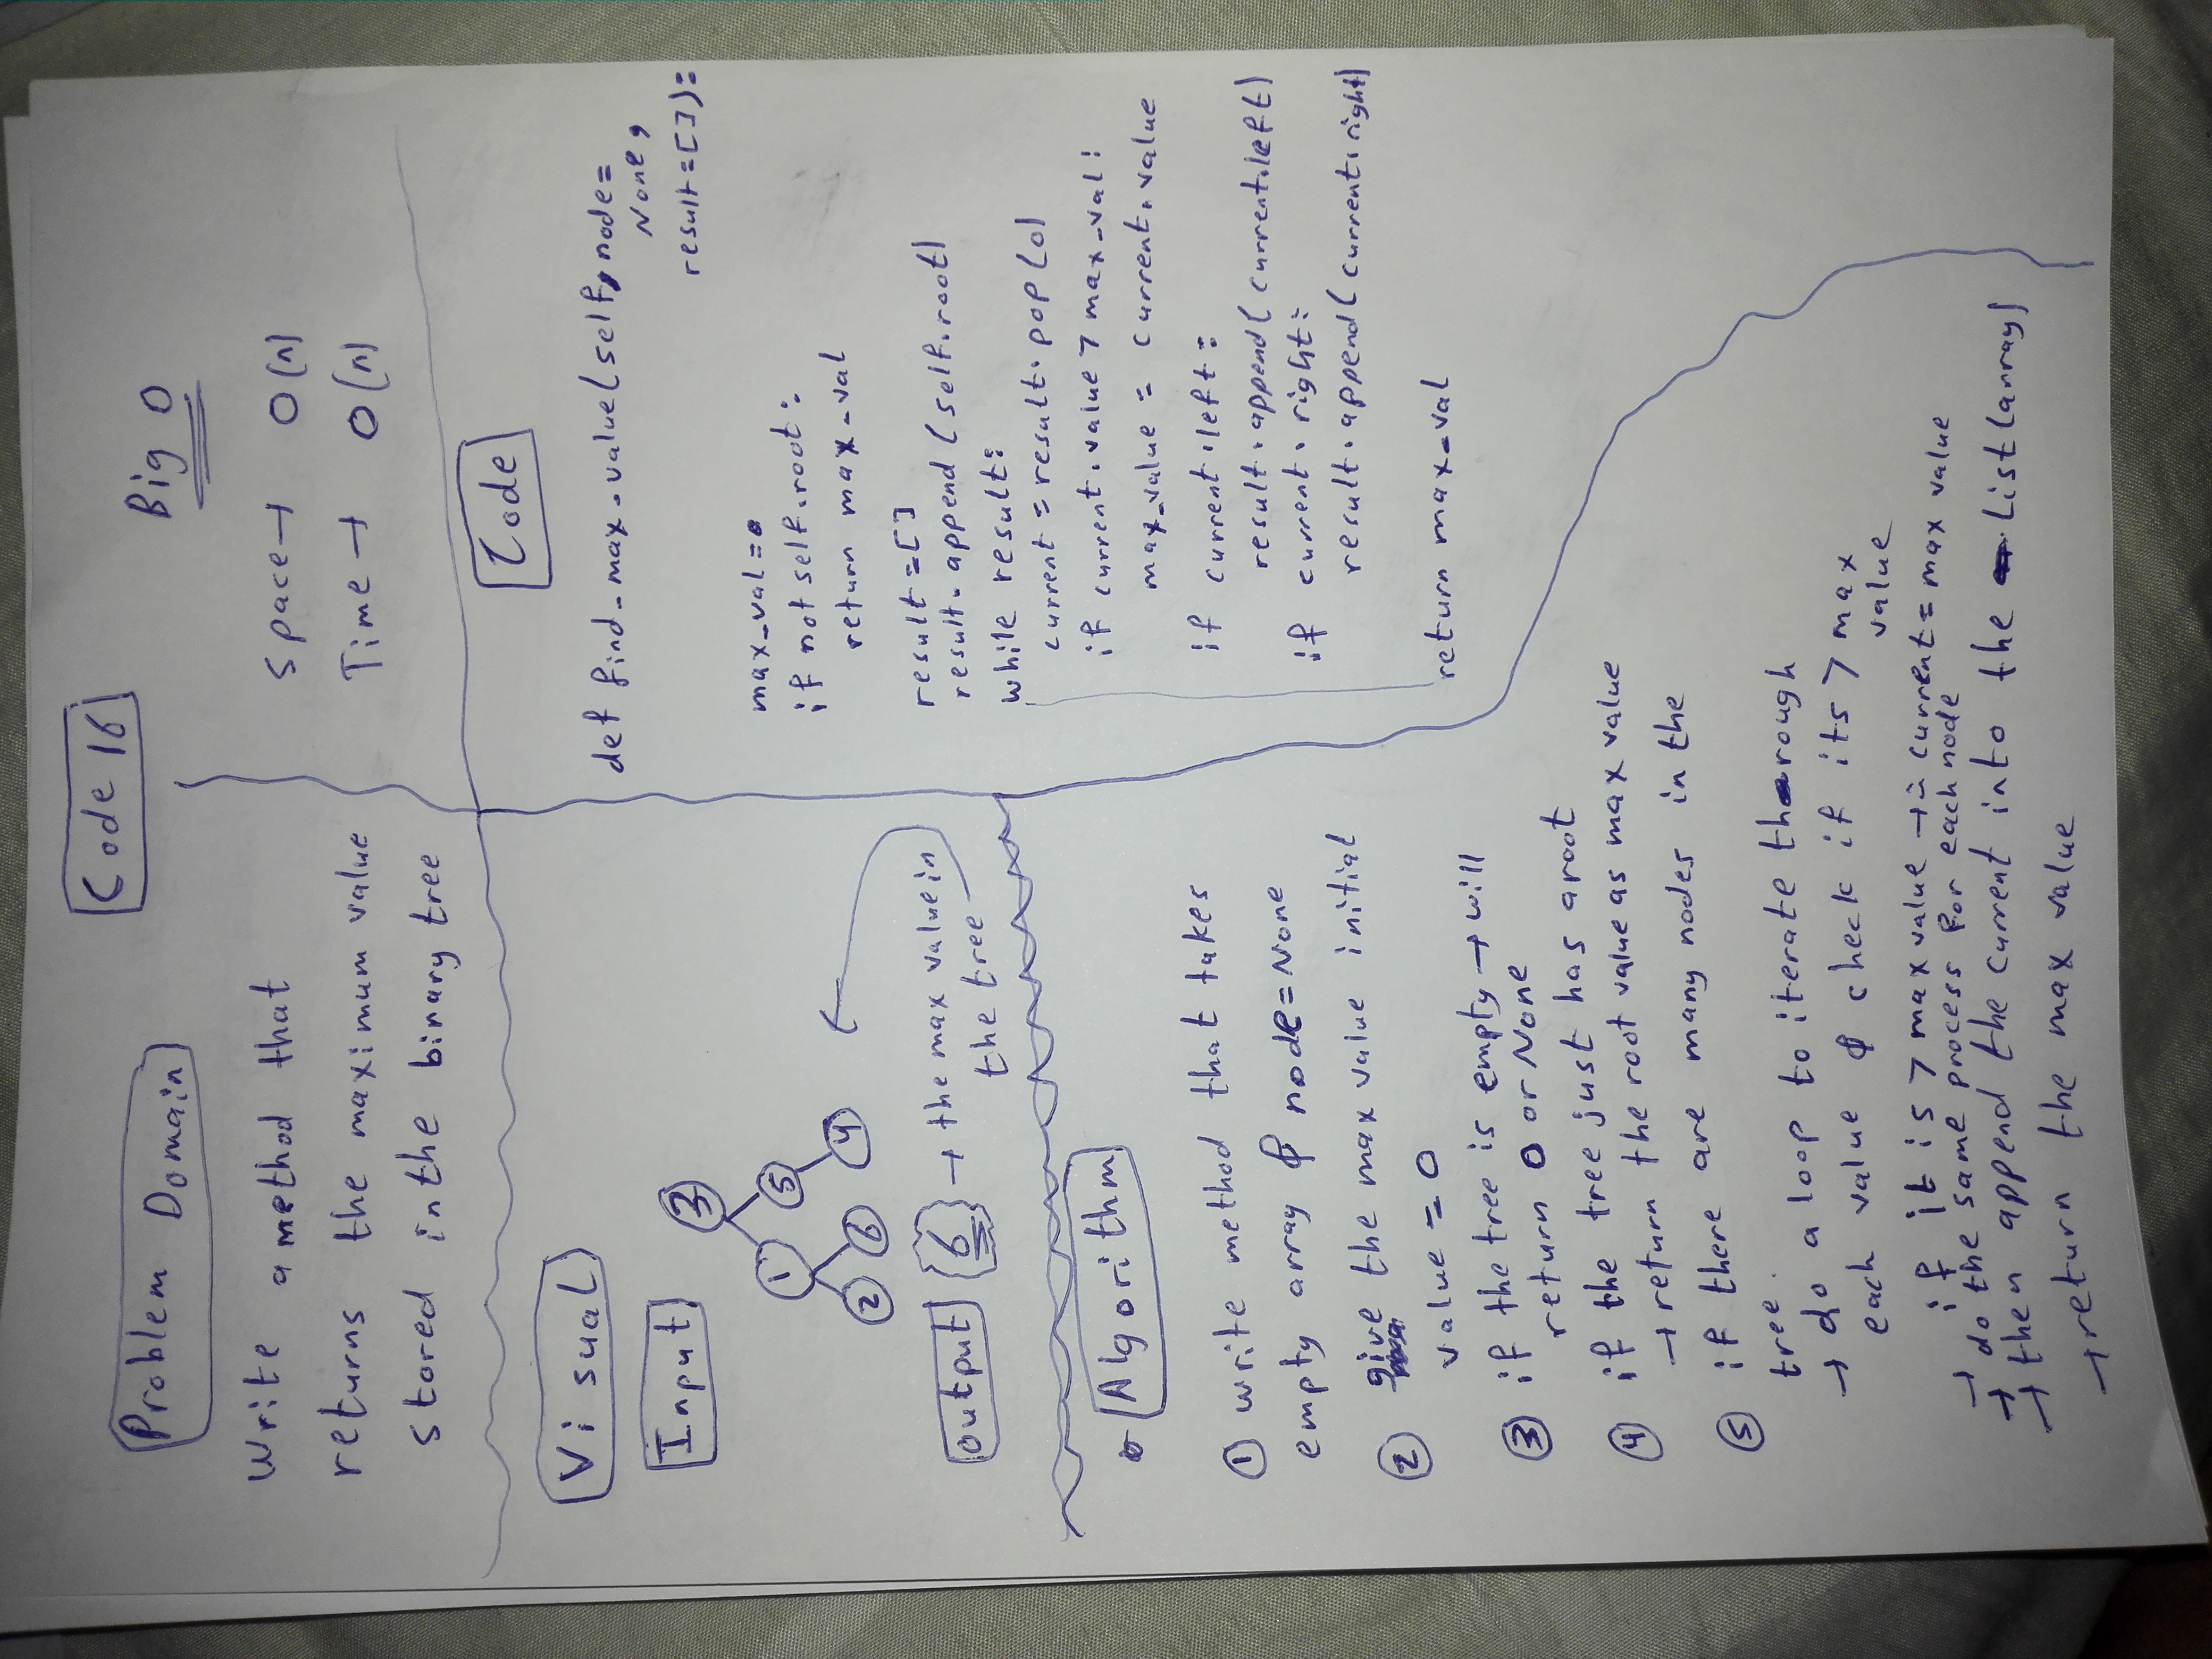 Code 16
Problem Domain
Write a method that
returns the maximum value
stored in the binary tree
Big O
Space → O(n)
Time → O(n)
Visual
Input
3
1 5
2 6 4
output {6} → the max value in
the tree
Algorithm
① write method that takes
empty array & node=None
② give the max value initial
value = 0
③ if the tree is empty → will
return 0 or None
④ if the tree just has aroot
→ return the root value as max value
⑤ if there are many nodes in the
tree.
→ do a loop to iterate through
each value & check if its > max
value
if it is > max value → current = max value
→ do the same process for each node
→ then append the current into the List (array)
→ return the max value
Code
def find_max_value(self, node=
None,
result=[]):
max_val=0
if not self.root:
return max_val
result=[]
result.append(self.root)
while result:
current=result.pop(0)
if current.value > max_val:
max_value = current.value
if current.left:
result.append(current.left)
if current.right:
result.append(current.right)
return max_val